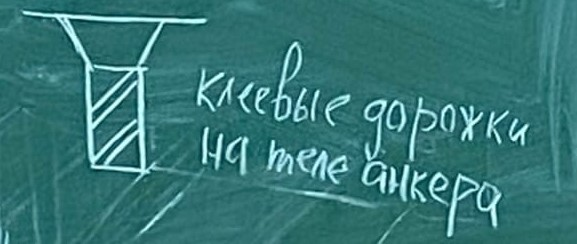 клеевые дорожки
на теле анкера